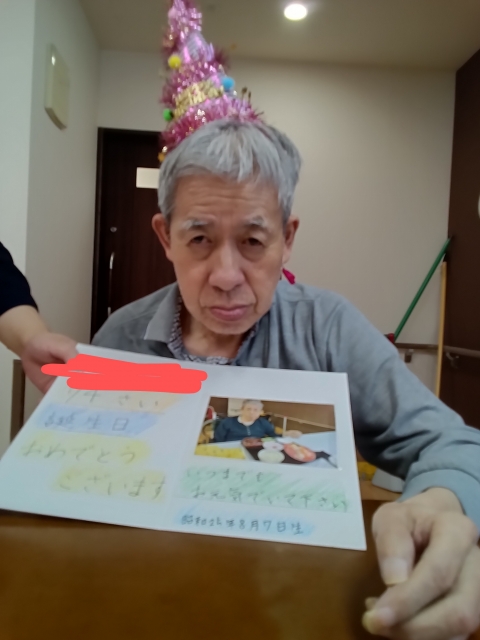 74さい
誕生日
おめでとう
ございます
いつまでも
お元気でいて下さい
昭和26年8月7日生